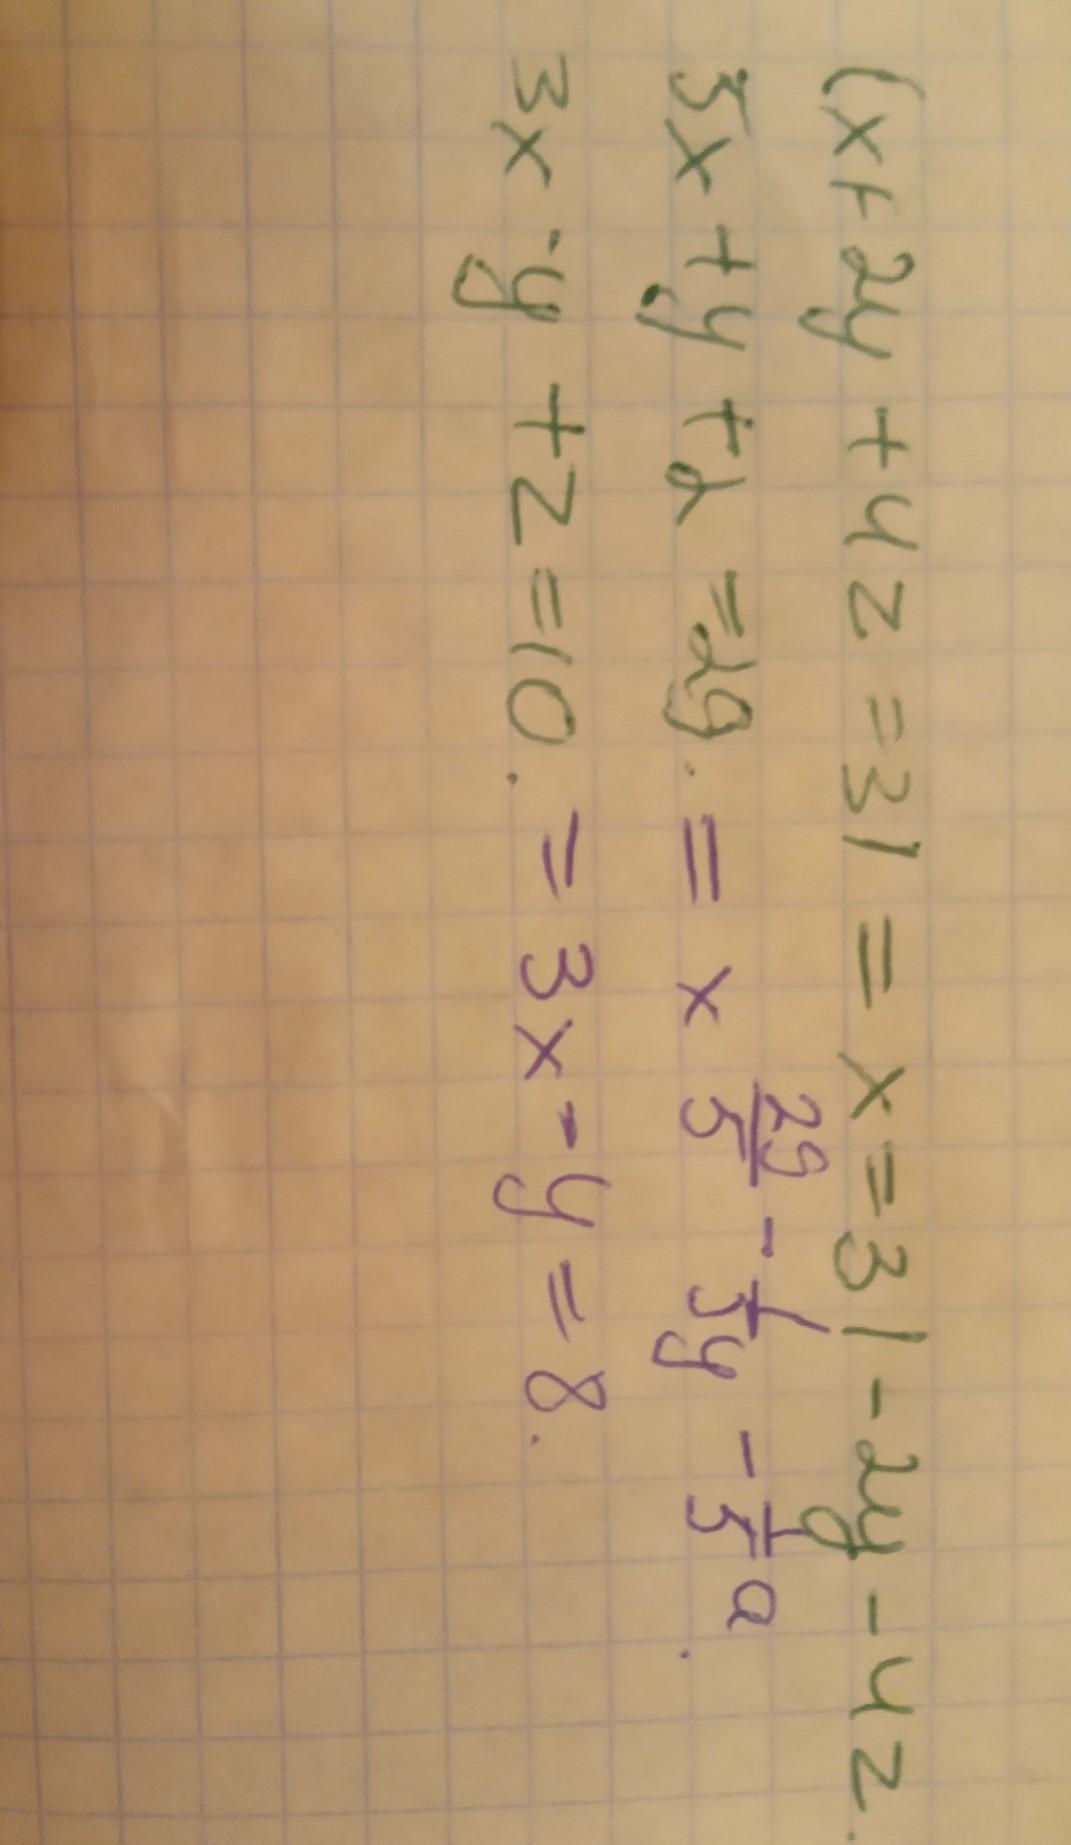 (x+2y+4z=31=x=31-2y-4z.
5x+y+2=29.=x 29/5-1/5y-1/5a.
3x-y+z=10.=3x-y=8.